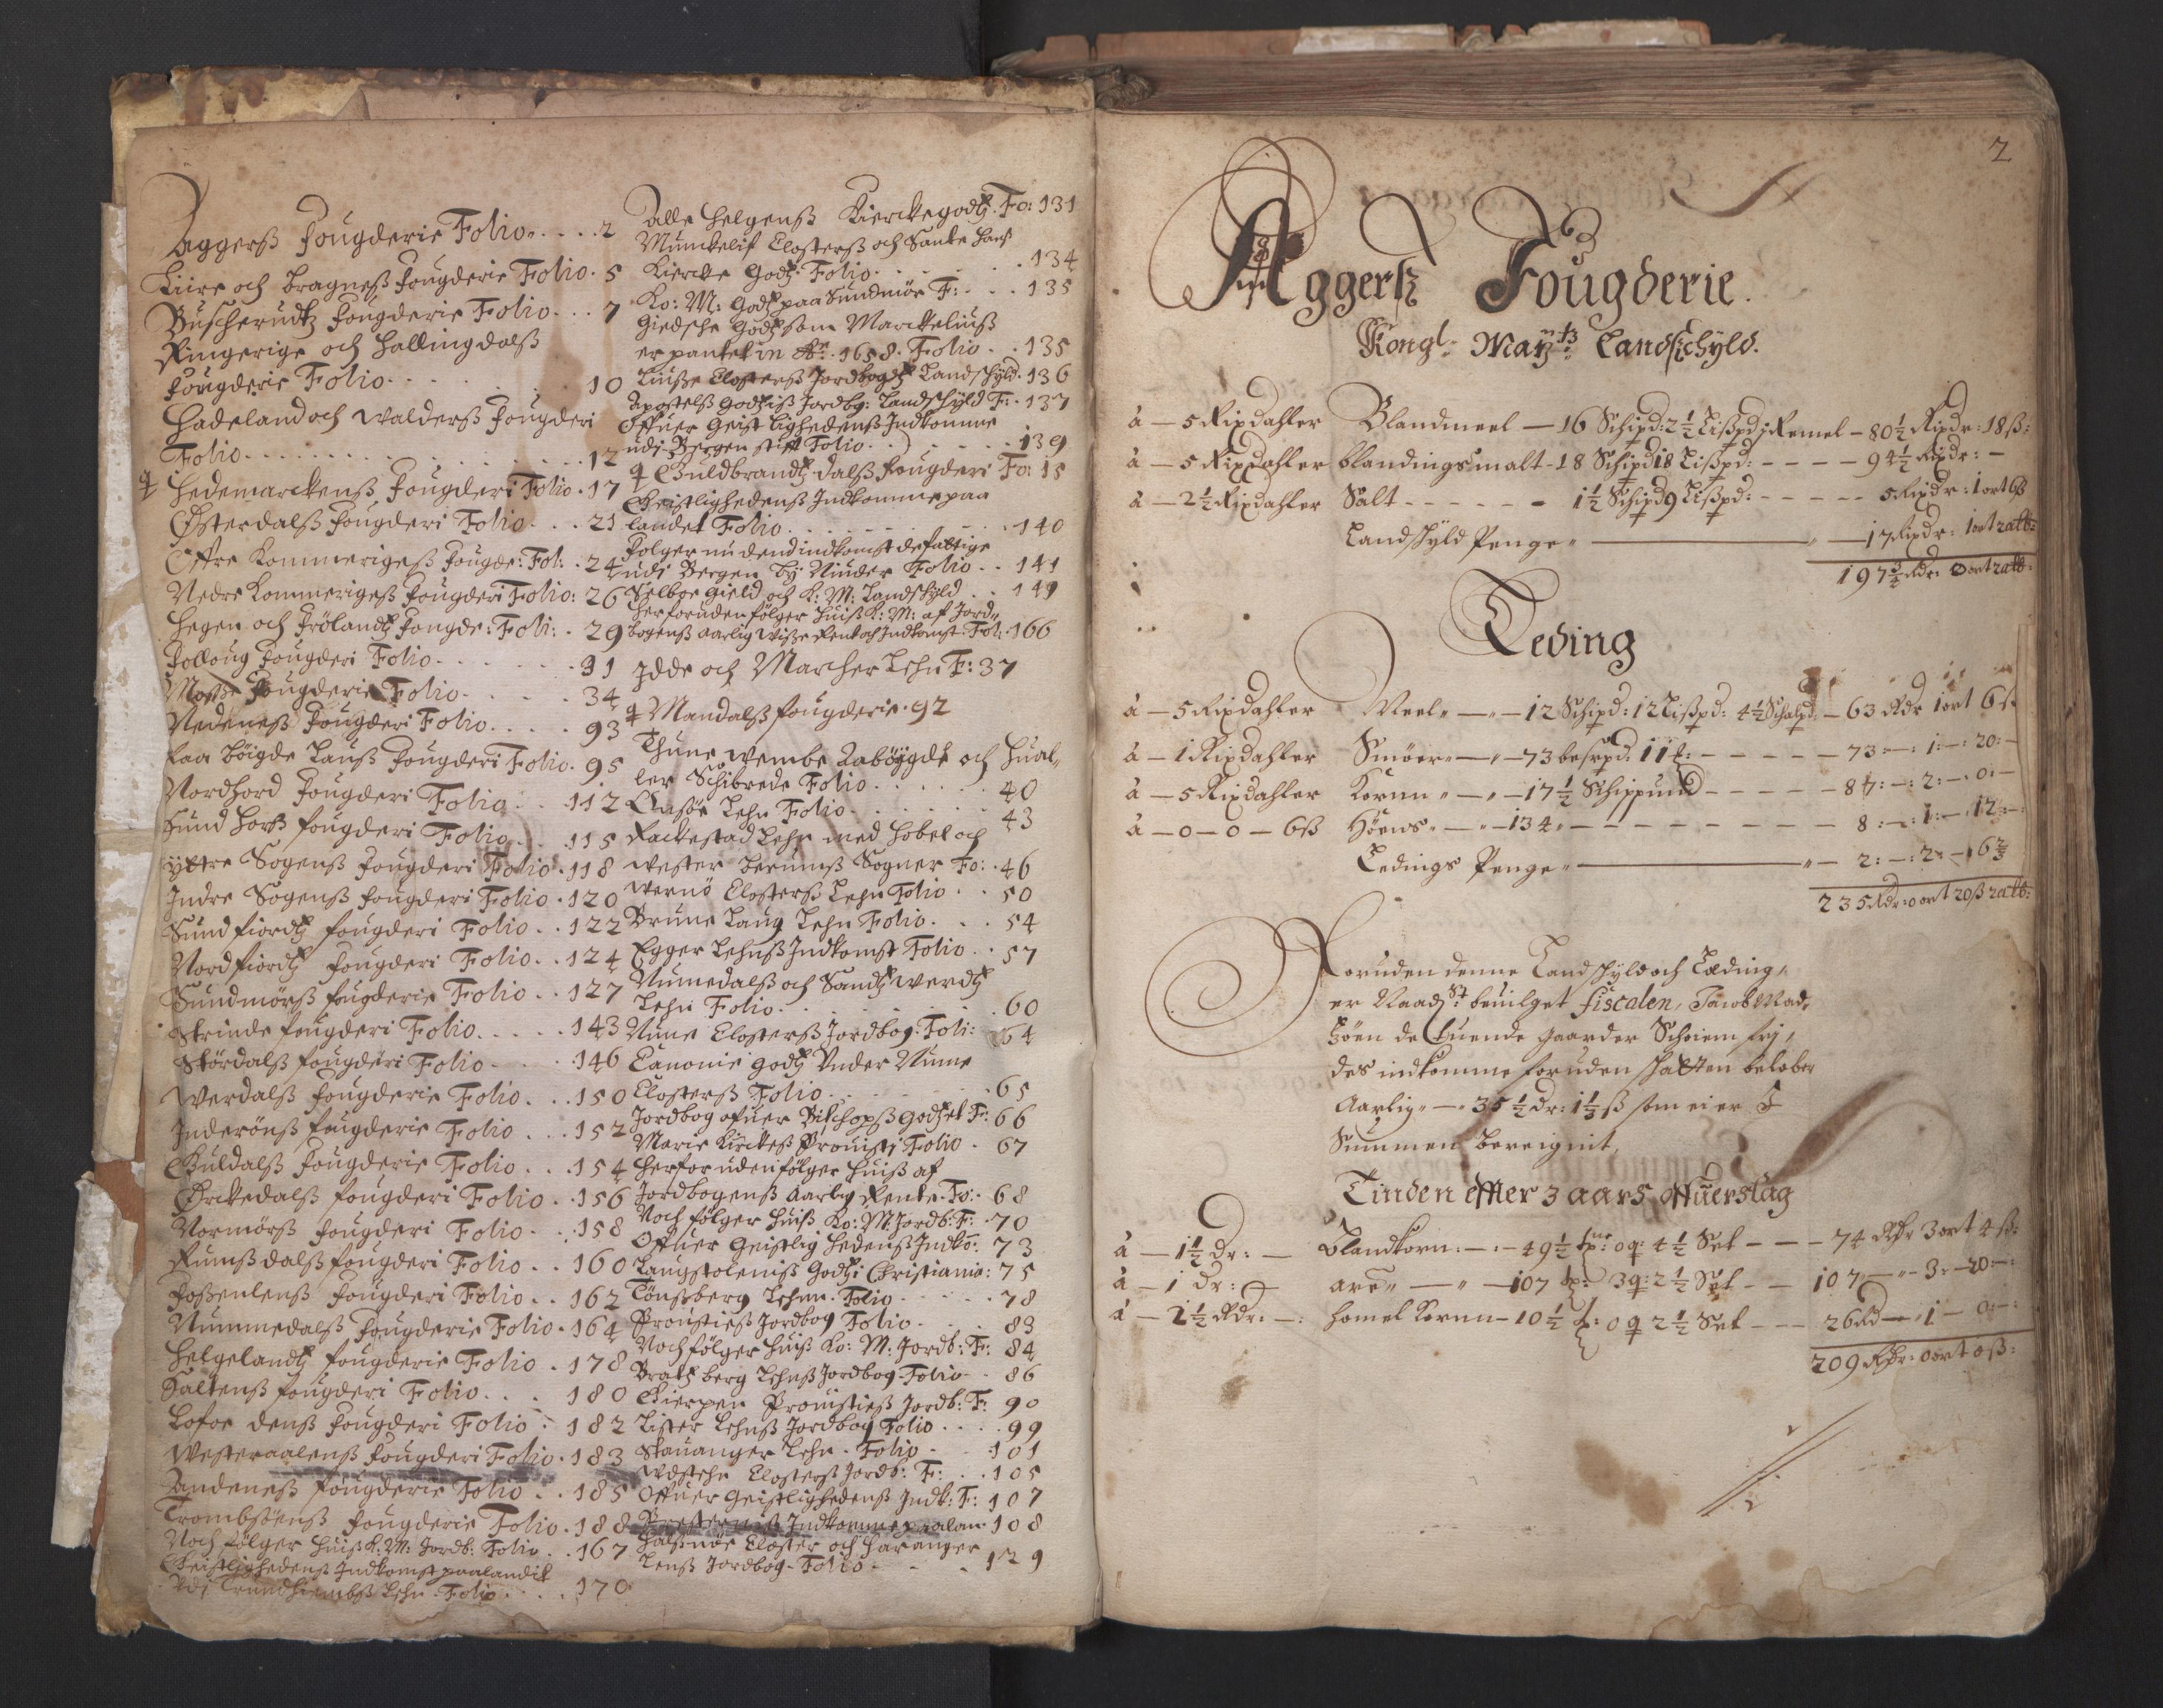 Aggerß Fougderie Folio . . . . 2
Liire och Bragneß Fougderie Folio . 5
Buscherudtz Fougderie Folio . . . 7
Ringerige och Hallingdalß
Fougderie Folio . . . 10
Hadeland och Walderß Fougderi
Folio . . . 12
Hedemarckenß Fougderi Folio . 17
Østerdalß Fougderi Folio . . . 21
Offre Rommerigeß Fougde: Fol: . 24
Nedre Rommerigeß Fougderi Folio: 26
Hegen och Frölandtz Fougde: Foli: . 29
Folloug Fougderi Folio . . . 31
Mosse Fougderie Folio . . . 34
Nedeneß Fougderi Folio . . . 93
Raa Böigde Lauß Fougderi Folio . 95
Nordhord Fougderi Folio . . 112
Sund Horß Fougderi Folio . . 115
Yttre Sogenß Fougderi Folio . 118
Indre Sogenß Fougderi Folio . 120
Sundfiordtz Fougderi Folio . . 122
Nordfiordtz Fougderi Folio . . 124
Sundmörß Fougderie Folio . . 127
Strinde Fougderi Folio . . . 143
Stördalß Fougderi Folio . . . 146
Werdalß Fougderie Folio . . . 150
Inderönß Fougderie Folio . . . 152
Guldalß Fougderie Folio . . . 154
Orckedalß Fougderi Folio . . 156
Normörß Fougderi Folio . . . 158
Rumßdalß Fougderi Folio . . 160
Foßenlenß Fougderi Folio . . 162
Nummedalß Fougderie Folio . 164
Helgelandtz Fougderie Folio . 178
Saltenß Fougderi Folio . . . 180
Lofoedenß Fougderi Folio . 182
Westeraalenß Fougderi Folio . 183
Andeneß Fougderie Folio . . 185
Trombsöenß Fougderie Folio . 188
Noch fölger huiß K: M: Jordb: Folio . . 167
Geistlighedenß Indkomst paa landit
Trundhiembß Lehn . Folio . . . 170
Alle Helgenß Kierckegodtz . Fo: 131
Munckelif Closterß och Sancte Hanß
Kiercke Godtz Folio . . . 134
Ko: M: Godtz paa Sundmör F: . . . 135
Giedsche Godtz som Marckeliuß
er pantet in Ao: 1658 . Folio . . 135
Luiße Closterß Jordbogtz Landschyld . 136
Apostelß Godtziß Jordbg: Landschyld F: . 137
Offuer Geistlighedenß Indkomme
udi Bergen stift Folio . . . 139
Guldbrandtz dalß Fougderi Fo: 15
Geistlighedenß Indkomme paa
landet Folio . . . 140
Folger nu dend indkomst de fattige
udi Bergen by Niuder Folio . . 141
Selboe gield och K: M: Landschyld . . 149
Her foruden fölger huiß K: M: af Jord-
bogenß aarlig wiße Rente och Indkomst: Fol: . 166
Idde och Marcher Lehn F: 37
Mandalß Fougderie . 92
Thune Wembe Aaböygde och Hual-
ler Schibrede Folio . . . 40
Onsöe Lehn Folio . . . 43
Rackestad Lehn med Hobel och
Wester Berumß Sogner Fo: . 46
Wernö Closterß Lehn Folio . . 50
Brune Laug Lehn Folio . . . 54
Egger Lehnß Indkomst Folio . . 57
Numedalß och Sandtzwerdtz
Lehn Folio . . . 60
Nune Closterß Jordbog: Foli: 64
Canonie godtz Under Nunne
Closterß Folio . . . 65
Jordbog ofuer Bischopß Godtzet F: 66
Marie Kirckeß Prouisti Folio . 67
Her foruden fölger huiß af
Jordbogenß aarlig Rente . Fo: . 68
Noch fölger huiß Ko: M: Jordb: F: . 70
Offuer Geistlighedenß Indko: 73
Laugstoleniß Godtz i Christiania: 75
Tönßberg Lehnn . Folio . . . 78
Proustieß Jordbog Folio . . . 83
Noch fölger huiß Ko: M: Jordb: F: 84
Bratzberg Lehnß Jordbog Folio . . 86
Gierpen Prouistieß Jordb: F: 90
Lister Lehnß Jordbog Folio . . . 99
Stauanger Lehn . Folio . . . 101
Udstehn Closterß Jordb: F: . . 105
Offuer Geistlighedenß Indk: F: 107
Presterniß Indkomme paa lan 108
Halßnöe Closter och Haranger
Lenß Jordbog . Folio . . . 129
2
Aggerß Fougderie.
Kongl: Maytz: Landschyld.
à — 5 Rixdahler Blandmeel — 16 Schipd: 2 1/2 Lißpd: Remel — 80 1/2 Rixdr: 18 ß:
à — 5 Rixdahler blandingsmalt - 18 Schipd 18 Lißpd: - - - - 94 1/2 Rixdr: —
à — 2 1/2 Rixdahler Salt - - - - - 1 1/2 Schipd 9 Lißpd: - - - - - 5 Rixdr: 1 ort 6 ß
Landschyld Penge — 17 Rixdr: 1 ort 2 alb:
197 1/2 Rdr: 0 ort 2 alb:
Leding
à — 5 Rixdahler Meel — 12 Schipd: 12 Lißpd: 4 1/2 Schalpd: — 63 Rdr 1 ort 6 ß
à — 1 Rixdahler Smöer — 73 besrpd: 11 - - - - - 73 — : 1: — : 20: —
à — 5 Rixdahler Kornn — 17 1/2 Schippund - - - - - 87: — : 2: — : 0: —
à — 0 — 0 — 6 ß — 134 - - - - - 8: — : 1: — : 12: —
Ledings Penge — 2: — : 2: — : 6 2/3
235 Rdr: 0 ort 20 ß 2 alb:
Foruden denne Landschyld och Læding,
er Naadst: beuilget Fiscalen, Jacob Mad-
ßöen de tuende gaarder Schoiem fry,
des indkomme foruden schatten beløber
Aarlig — 35 1/2 dr: 1 1/3 ß som ei er I
Summen bereignit,
Tinden effter 3 aars offuerslag
à — 1 1/2 dr: — Blandkorn: — 49 1/2 tpnr: 0 q: 4 1/2 Set — — 74 Rdr 3 ort 4 ß:
à — 1 dr: — — 107 tp: 3 q: 2 1/2 Set — — 107 — 3: — 20 — :
à — 2 1/2 Rdr: — : homel Kornn — 10 1/2 t: 0 q 2 1/2 Set — — 26 Rd — 1 — 0: — :
209 Rdr: 0 ort 0 ß: